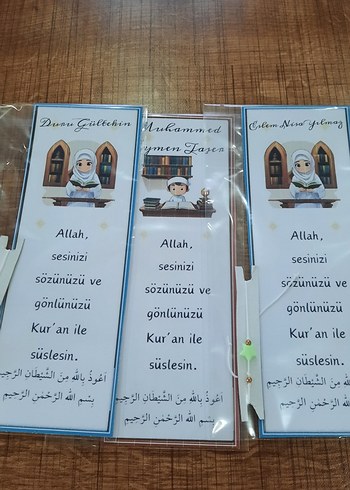 Duru Gültekin
Allah,
sesinizi
sözünüzü ve
gönlünüzü
Kur'an ile
süslesin.
اَعُوذُ بِاللهِ مِنَ الشَّيْطَانِ الرَّجِيمِ
بِسْمِ اللهِ الرَّحْمٰنِ الرَّحِيمِ
Muhammed
ymen Taşer
Allah,
sesinizi
sözünüzü ve
gönlünüzü
Kur'an ile
süslesin.
اَعُوذُ بِاللهِ مِنَ الشَّيْطَانِ الرَّجِيمِ
بِسْمِ اللهِ الرَّحْمٰنِ الرَّحِيمِ
Nisa Yılmaz
Allah,
sesinizi
sözünüzü ve
gönlünüzü
Kur'an ile
süslesin.
بِاللهِ مِنَ الشَّيْطَانِ الرَّجِيمِ
بِسْمِ اللهِ الرَّحْمٰنِ الرَّحِيمِ